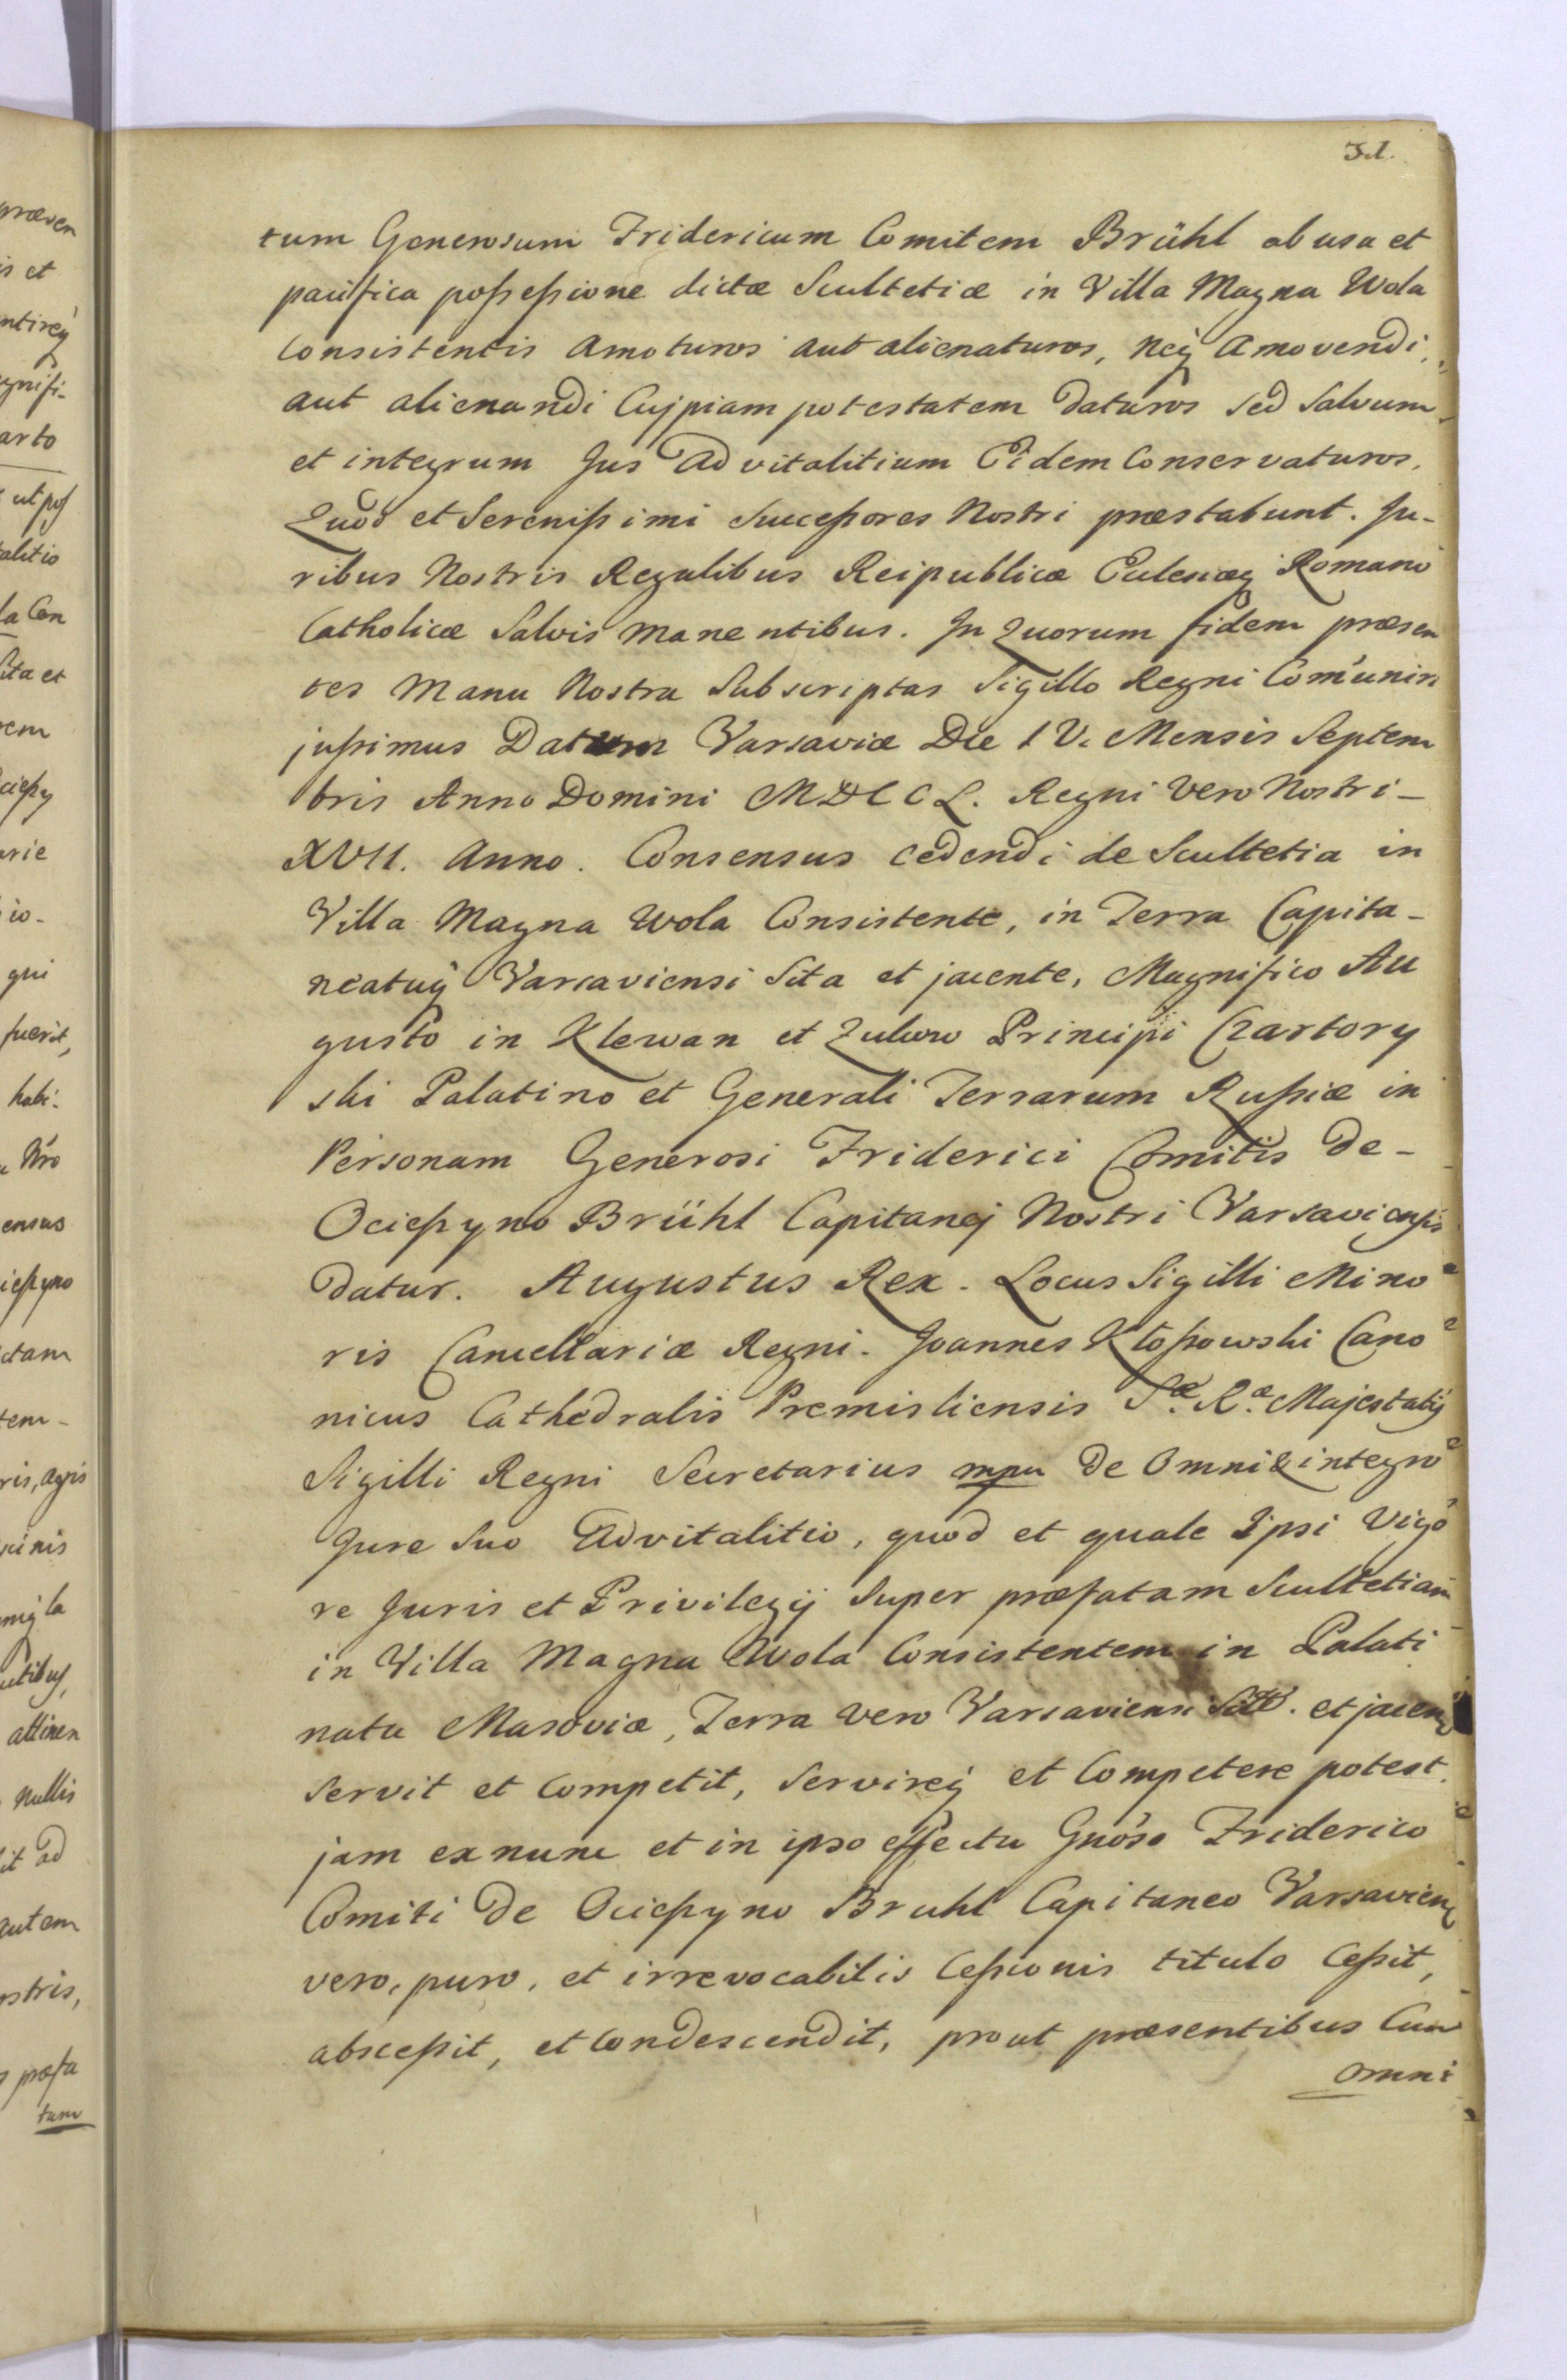 tum Generosum Fridericum Comitem Brühl ab usu et
pacifica poßeßione dictæ Scultetiæ in Villa Magna Wola
Consistentis amoturos aut alienaturos, neq̃ amovendi,
aut alienandi Cujpiam potestatem daturos sed Salvum
et integrum Jus advitalitium Eidem Conservaturos.
Quod et Serenißimi Succeßores Nostri præstabunt. Ju-
ribus Nostris Regalibus Reipublicæ Eclesiæq̃ Romano
Catholicæ Salvis manentibus. In Quorum fidem præsen
tes manu Nostra Subscriptas Sigillo Regni Com̃uniri
jußimus Datum Varsaviæ Die IV. Mensis Septem
bris Anno Domini MDCCL. Regni vero Nostri-
XVII. Anno. Consensus cedendi de Scultetia in
Villa Magna Wola Consistente, in Terra Capita-
neatuq̃ Varsaviensi Sita et jacente, Magnifico Au
gusto in Klewan et Zukow Principi Czartory
ski Palatino et Generali Terrarum Rußiæ in
Personam Generosi Friderici Comitis de-
Ocießyno Brühl Capitanej Nostri Varsaviensis
datur. Augustus Rex. Locus Sigilli Mino
ris Cancellariæ Regni. Joannes Kłoßowski Cano
nicus Cathedralis Premisliensis Sæ. Ræ. Majestatis
Sigilli Regni Secretarius mpu de Omni & integro
Jure Suo Advitalitio, quod et quale Ipsi Vigo
re Juris et Privilegij Super præfatam Scultetiam
in Villa Magna Wola Consistentem in Palati
natu Masoviæ, Terra vero Varsaviensi et jacen
servit et Competit, servireq̃ et Competere potest.
jam ex nunc et in ipso effectu Gnoso Friderico
Comiti de Ocießyno Bruhl Capitaneo Varsavien
vero, puro, et irrevocabilis Ceßionis titulo Ceßit,
absceßit, et Condescendit, prout præsentibus Cum
omni